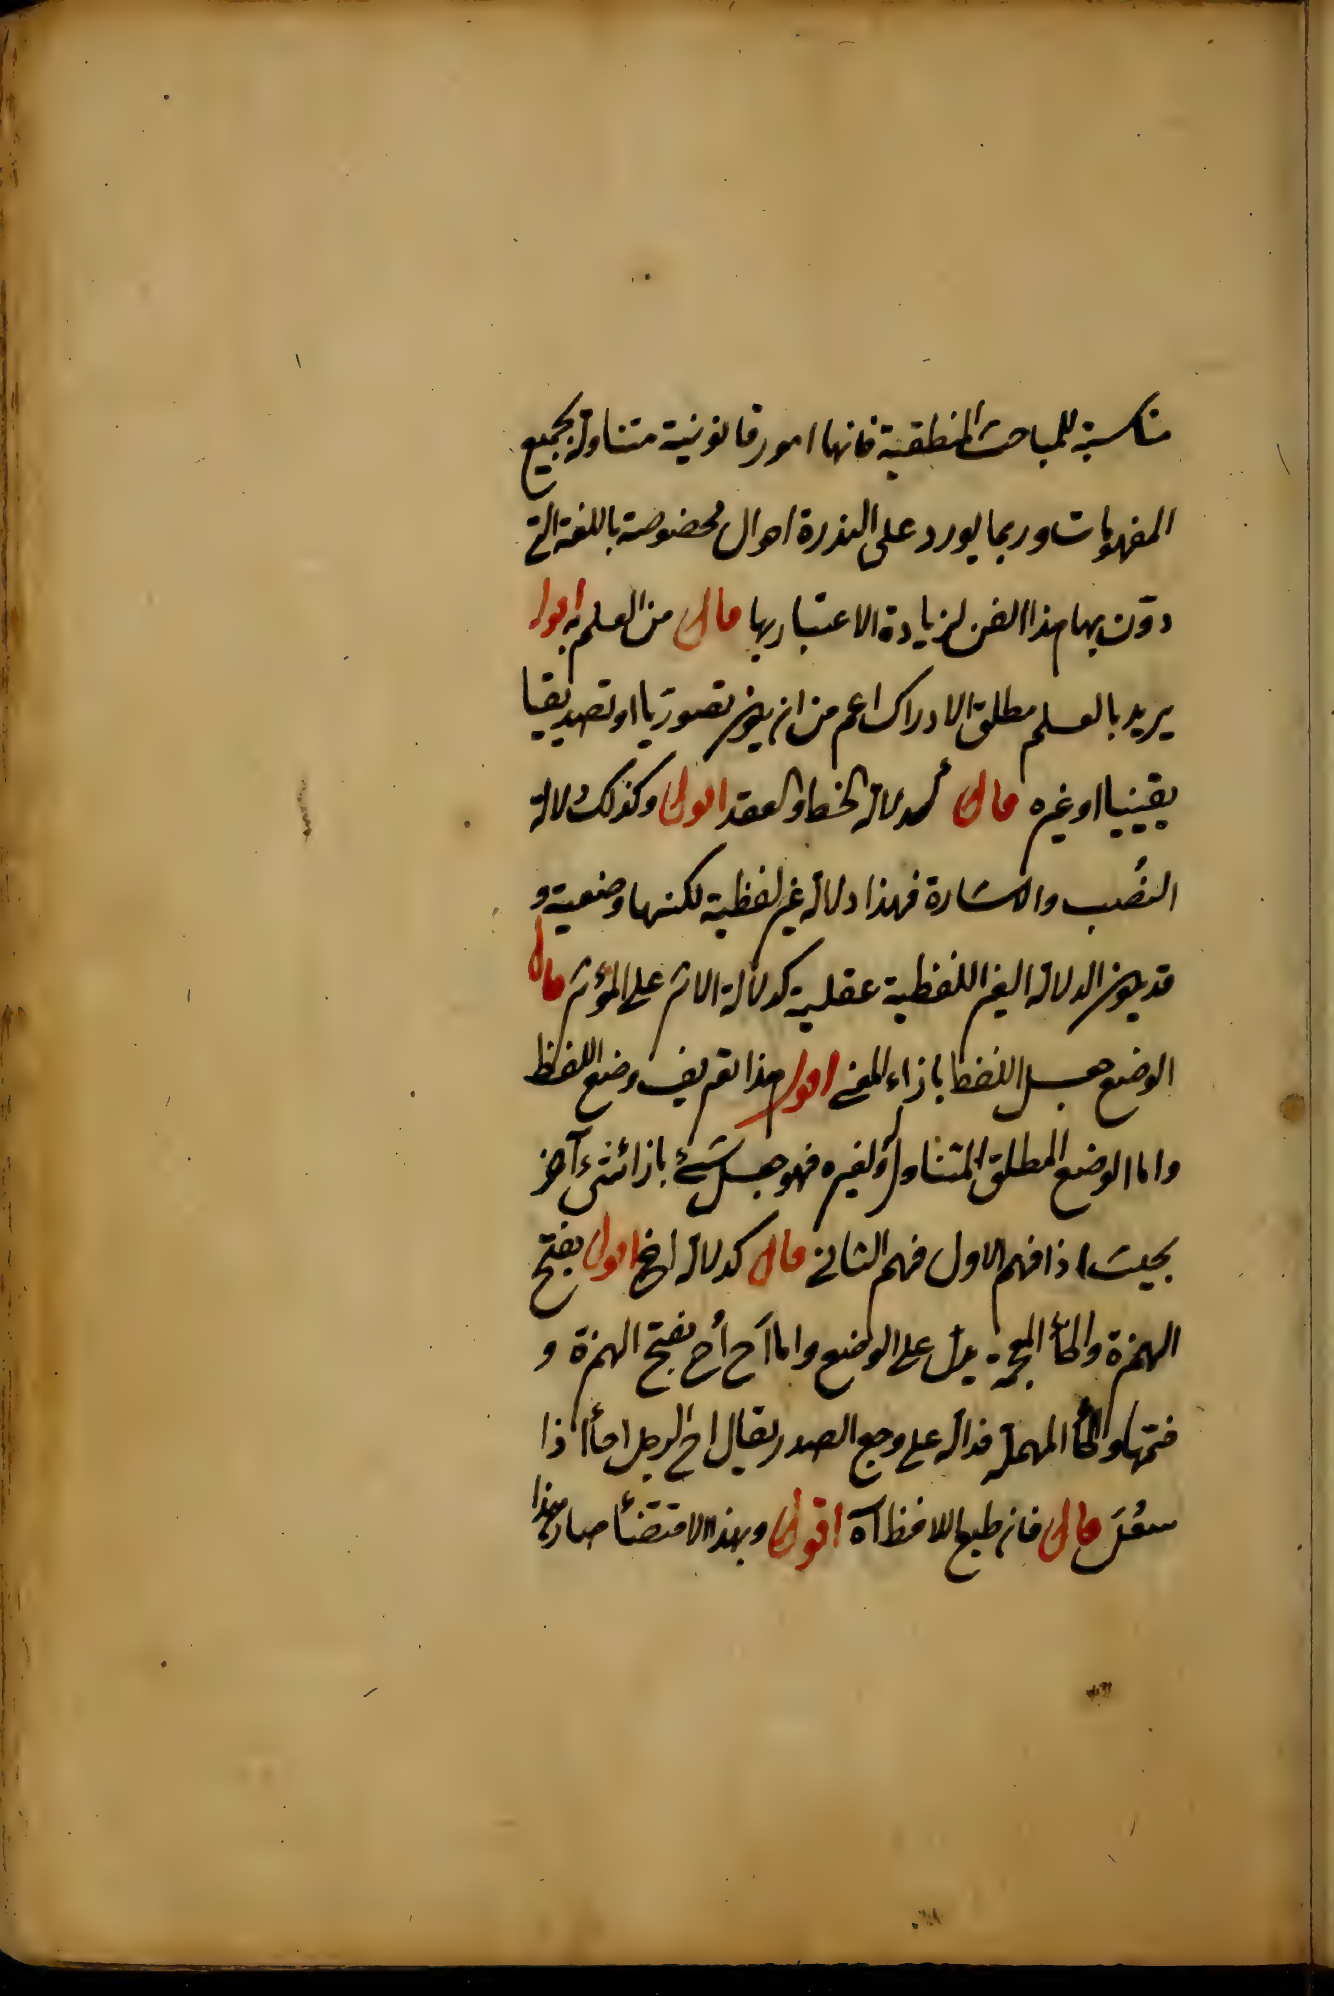 مناسبة للمباحث المنطقية فانها امور قانونية متناولة لجميع
المفهومات وربما يورد على الندرة احوال مخصوصة باللغة التي
دوّن بها هذا الفن لزيادة الاعتبار بها قال من العلم به اقول
يريد بالعلم مطلق الادراك اعم من ان يكون تصوريا او تصديقيا
يقينيا او غيره قال كدلالة الخط والعقد اقول وكذلك دلالة
النُصب والاشارة فهذا دلالة غير لفظية لكنها وضعية و
قد يكون الدلالة الغير اللفظية عقلية كدلالة الاثر على المؤثر قال
الوضع جعل اللفظ بازاء المعنى اقول هذا تعريف وضع اللفظ
واما الوضع المطلق المتناول له ولغيره فهو جعل شئ بازاء شئ آخر
بحيث اذا فهم الاول فهم الثاني قال كدلالة اخ اقول بفتح
الهمزة والخأ المعجمة يدل على الوضع واما أح أح بفتح الهمزة و
ضمها والحأ المهملة فدالة على وجع الصدر يقال اح الرجل احأ اذا
سعُل قال فان طبع اللافظ آه اقول وبهذا الاقتضأ صار هذا